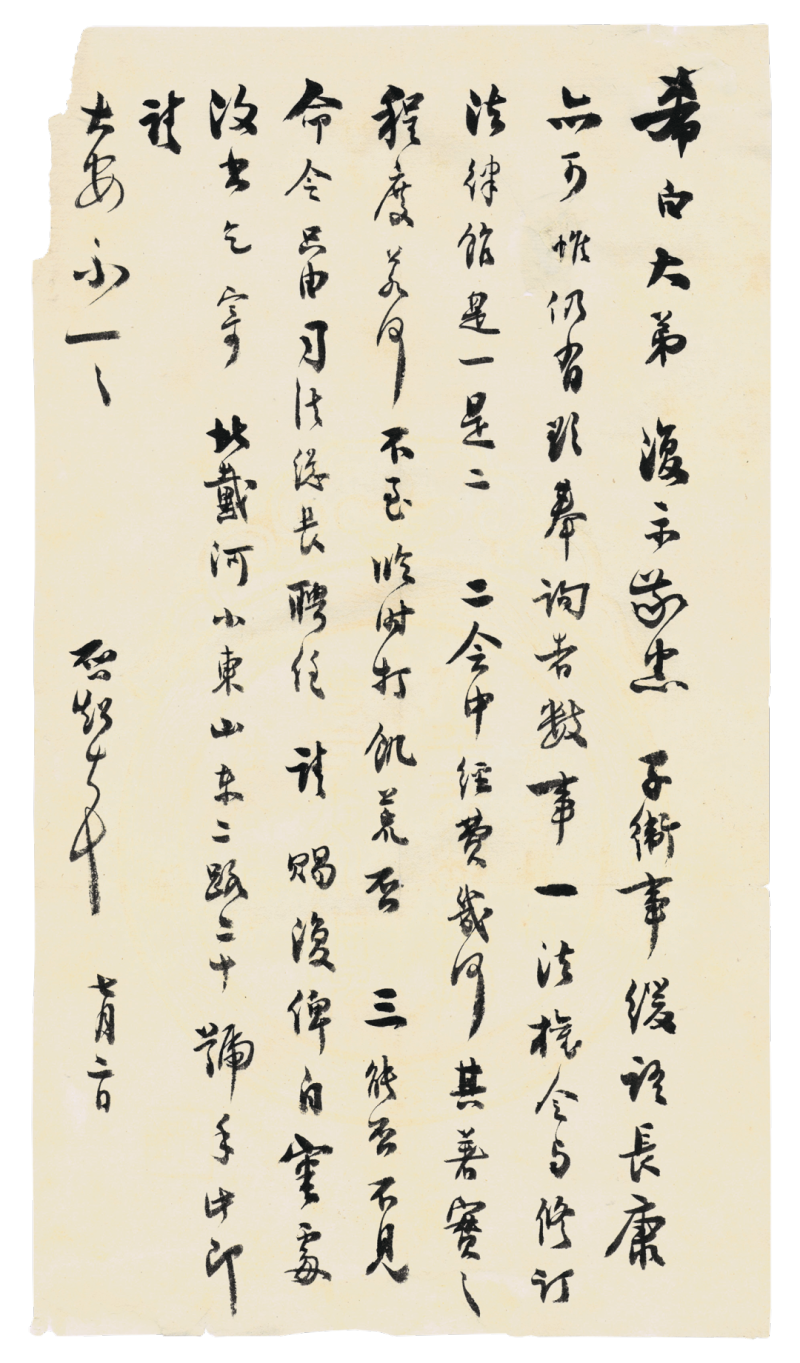 希白大弟 復示敬悉 子衡事緩語長康
亦可惟仍有頭奉詢者數事一法權會与修訂
法律館是一是二 二會中經費幾何其著實之
程度若何不至臨時打飢荒否 三能否不見
命令只由司法總長聘任 請 賜復俾自審處
復書乞寄 北戴河小東山東二路二十號手此即
請
大安不一一
啓超頓首 七月二日